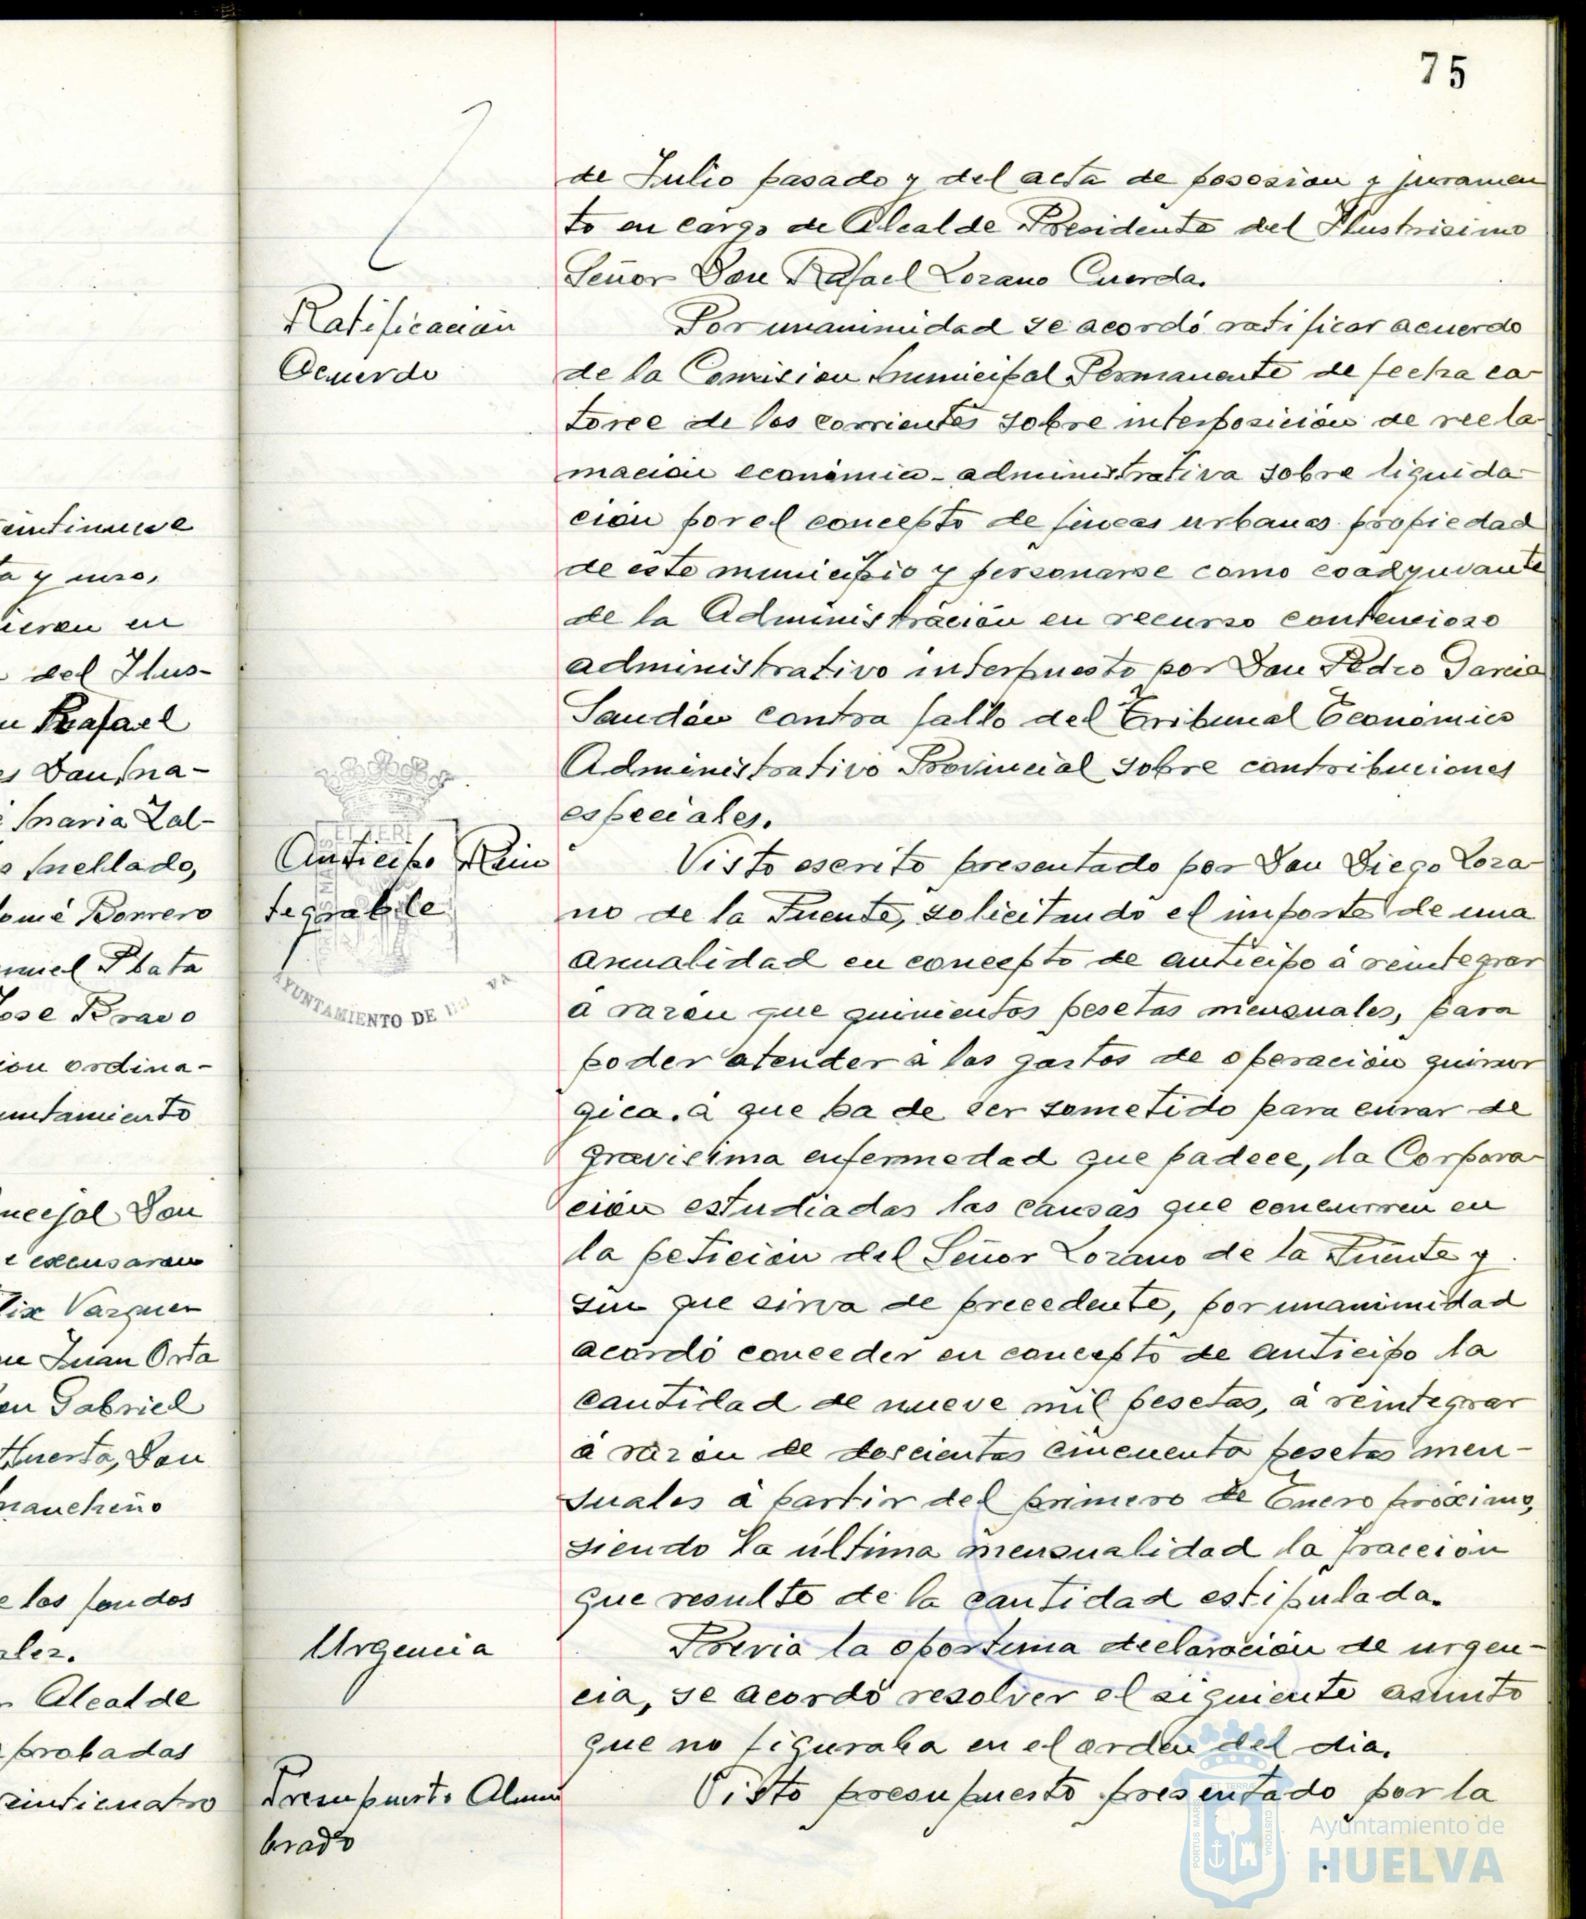 75
de Julio pasado y del acta de posesion y juramen
to en cargo de Alcalde Presidente del Ilustrisimo
Señor Don Rafael Lozano Cuerda.
Ratificación
Acuerdo
Por unanimidad se acordó ratificar acuerdo
de la Comision Municipal Permanente de fecha ca-
torce de los corrientes sobre interposición de recla-
mación económia-administrativa sobre liquida-
ción por el concepto de fincas urbanas propiedad
de este municipio y personarse como coadyuvante
de la Administración en recurso contencioso
administrativo interpuesto por Don Pedro Garcia
Sandón contra fallo del Tribunal Económico
Administrativo Provincial sobre contribuciones
especiales.
Anticipo Rein
tegrable
AYUNTAMIENTO DE
Visto escrito presentado por Don Diego Loza-
no de la Fuente, solicitando el importe de una
anualidad en concepto de anticipo á reintegrar
á razón que quinientos pesetas mensuales, para
poder atender á los gastos de operación quirur
gica. á que ha de ser sometido para curar de
gravisima enfermedad que padece, la Corpora-
ción estudiadas las causas que concurren en
la petición del Señor Lozano de la Fuente y
sin que sirva de precedente, por unanimidad
acordó conceder en concepto de anticipo la
cantidad de nueve mil pesetas, á reintegrar
á razón de doscientas cincuenta pesetas men-
suales á partir del primero de Enero próximo,
siendo la última mensualidad la fracción
que resulte de la cantidad estipulada.
Urgencia
Previa la oportuna declaración de urgen-
cia, se acordó resolver el siguiente asunto
que no figuraba en el orden del dia.
Presupuesto Alum
brado
Visto presupuesto presentado por la
eintinueve
a y uno,
ieron en
del Ilus-
Rafael
Don Ma-
Maria Zal-
Mellado,
lomé Borrero
nuel Plata
Jose Bravo
ion ordina-
untamiento
ncejal Don
e excusaron
lix Vazquez
Juan Orta
on Gabriel
Huerta, Don
mancheño
e los fondos
Alcalde
probadas
eintieuatro
Ayuntamiento de
HUELVA